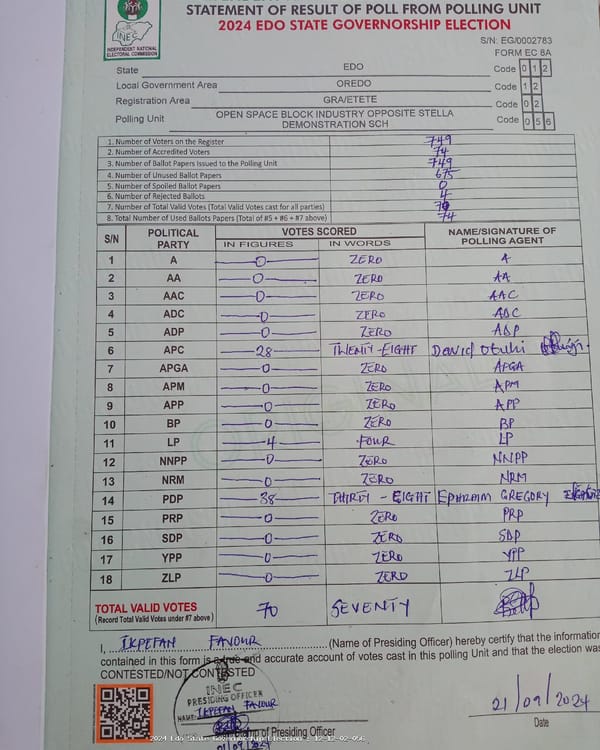 STATEMENT OF RESULT OF POLL FROM POLLING UNIT
2024 EDO STATE GOVERNORSHIP ELECTION
INEC
INDEPENDENT NATIONAL
ELECTORAL COMMISSION
S/N: EG/0002783
FORM EC 8A
State EDO Code 0 1 2
Local Government Area OREDO Code 1 2
Registration Area GRA/ETETE Code 0 2
Polling Unit OPEN SPACE BLOCK INDUSTRY OPPOSITE STELLA DEMONSTRATION SCH Code 0 5 6
1. Number of Voters on the Register 749
2. Number of Accredited Voters 74
3. Number of Ballot Papers Issued to the Polling Unit 749
4. Number of Unused Ballot Papers 675
5. Number of Spoiled Ballot Papers 0
6. Number of Rejected Ballots 4
7. Number of Total Valid Votes (Total Valid Votes cast for all parties) 70
8. Total Number of Used Ballots Papers (Total of #5 + #6 + #7 above) 74
S/N POLITICAL PARTY VOTES SCORED NAME/SIGNATURE OF POLLING AGENT
IN FIGURES IN WORDS
1 A 0 ZERO A
2 AA 0 ZERO AA
3 AAC 0 ZERO AAC
4 ADC 0 ZERO ADC
5 ADP 0 ZERO ADP
6 APC 28 TWENTY-EIGHT David Otuhi
7 APGA 0 ZERO APGA
8 APM 0 ZERO APM
9 APP 0 ZERO APP
10 BP 0 ZERO BP
11 LP 4 FOUR LP
12 NNPP 0 ZERO NNPP
13 NRM 0 ZERO NRM
14 PDP 38 THIRTY-EIGHT EPHRAIM GREGORY
15 PRP 0 ZERO PRP
16 SDP 0 ZERO SDP
17 YPP 0 ZERO YPP
18 ZLP 0 ZERO ZLP
TOTAL VALID VOTES 70 SEVENTY
(Record Total Valid Votes under #7 above)
I, IKPEFAN FAVOUR (Name of Presiding Officer) hereby certify that the information
contained in this form is a true and accurate account of votes cast in this polling Unit and that the election was
CONTESTED/NOT CONTESTED
INEC
PRESIDING OFFICER
NAME: IKPEFAN FAVOUR
21/09/2024
Date
of Presiding Officer
21/09/2024